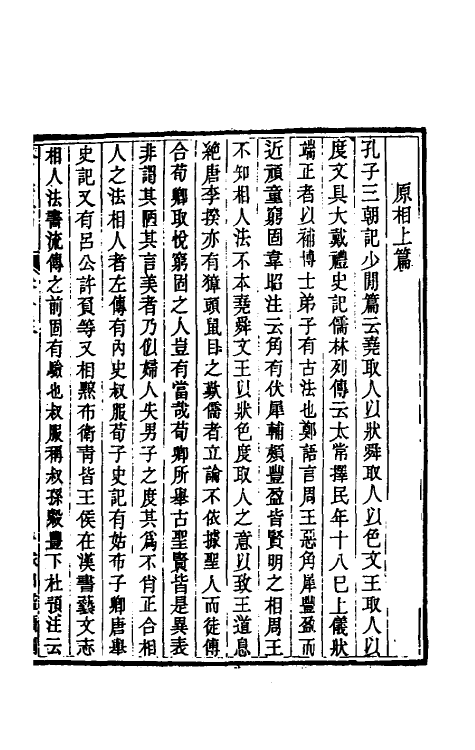 原相上篇
孔子三朝記少閒篇云堯取人以狀舜取人以色文王取人以
度文具大戴禮史記儒林列傳云太常擇民年十八巳上儀狀
端正者以補博士弟子有古法也鄭語言周王惡角犀豐盈而
近頑童窮固韋昭注云角有伏犀輔頰豐盈皆賢明之相周王
不知相人法不本堯舜文王以狀色度取人之意以致王道息
絶唐李揆亦有獐頭鼠目之歎儒者立論不依據聖人而徒傳
合荀卿取悅窮固之人豈有當哉荀卿所舉古聖賢皆是異表
非謂其陋其言美者乃似婦人失男子之度其為不肖正合相
人之法相人者左傳有內史叔服荀子史記有姑布子卿唐舉
史記又有呂公許負等又相黥布衛青皆王侯在漢書藝文志
相人法書流傳之前固有驗也叔服稱叔孫穀豐下杜預注云